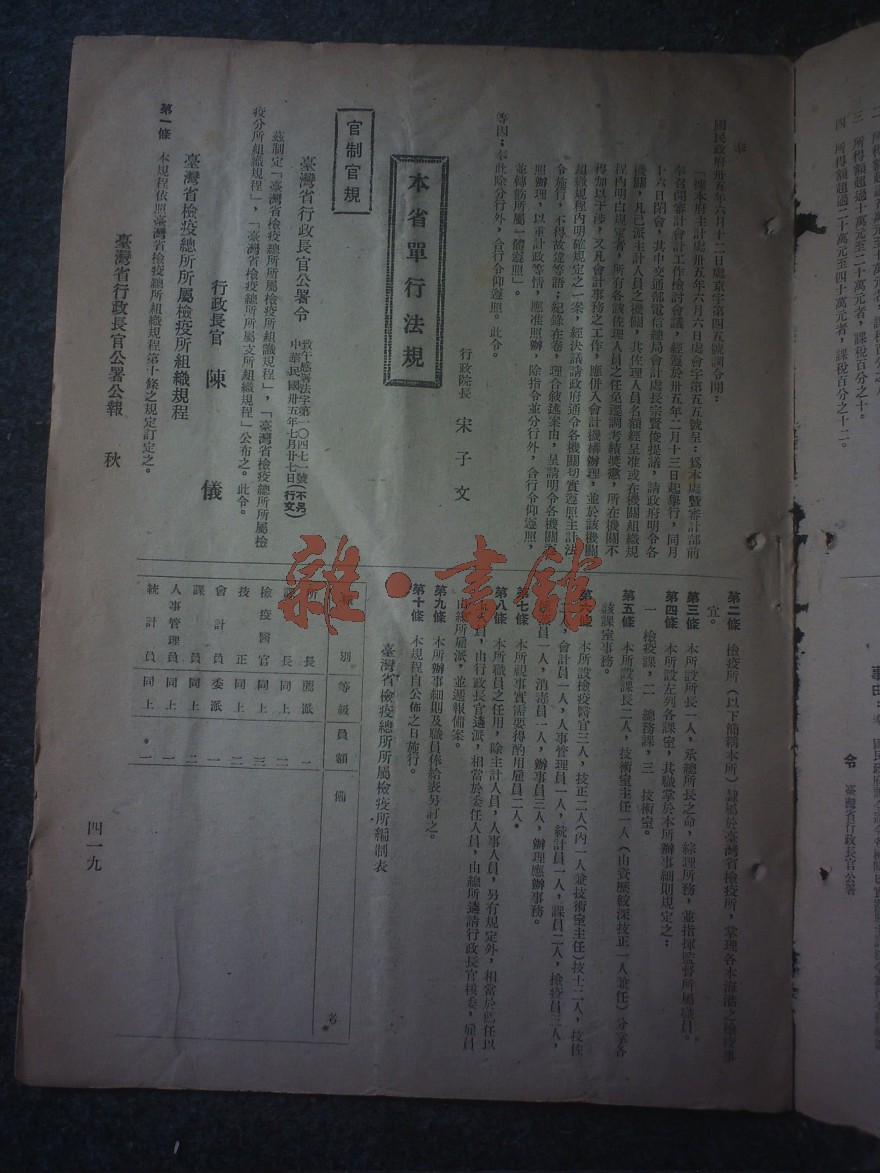 國民政府卅五年六月十二日處京字第四五號訓令開：
「據本府主計處卅五年六月六日處會字第五五號呈：爲本處暨審計部前
奉召開審計會計工作檢討會議，經遵於卅五年二月十三日起舉行，同月
十六日閉會，其中交通部電信總局會計處長宗賢俊提議，請政府明令各
機關，凡已派主計人員之機關，其佐理人員名額經呈准或在機關組織規
程內明白規定者，所有各該佐理人員之任免遷調考績獎懲，所在機關不
得加以干涉，又凡會計事務之工作，應併入會計機構辦理，並於該機關
組織規程內明確規定之一案，經決議請政府通令各機關切實遵照主計法
令施行，不得故違等語；紀錄在卷，理合敘述案由，呈請明令各機關遵
照辦理，以重計政等情，應准照辦，除指令並分行外，合行令仰遵照，
並轉飭所屬一體遵照」。
等因；奉此除分行外，合行令仰遵照。此令。
行政院長　宋子文
本省單行法規
官制官規
臺灣省行政長官公署令
致午感署法字第一〇四七一號
中華民國卅五年七月廿七日
（不另行文）
茲制定「臺灣省檢疫總所所屬檢疫所組織規程」，「臺灣省檢疫總所所屬檢
疫分所組織規程」，「臺灣省檢疫總所所屬支所組織規程」公布之。此令。
行政長官　陳　儀
臺灣省檢疫總所所屬檢疫所組織規程
第一條　本規程依照臺灣省檢疫總所組織規程第十條之規定訂定之。
第二條　檢疫所（以下簡稱本所）隸屬於臺灣省檢疫所，掌理各本海港之檢疫事
宜。
第三條　本所設所長一人，承總所長之命，綜理所務，並指揮監督所屬職員。
第四條　本所設左列各課室，其職掌於本所辦事細則規定之：
一　檢疫課，二　總務課，三　技術室。
第五條　本所設課長二人，技術室主任一人（由資歷較深技正一人兼任）分掌各
該課室事務。
第六條　本所設檢疫醫官三人，技正二人（內一人兼技術室主任）技士二人，技佐
人，會計員一人，人事管理員一人，統計員一人，課員二人，檢疫員三人，
員一人，消毒員一人，辦事員三人，辦理應辦事務。
第七條　本所視事實需要得酌用雇員二人。
第八條　本所職員之任用，除主計人員，人事人員，另有規定外，相當於薦任以
上人員，由行政長官遴派，相當於委任人員，由總所遴請行政長官核委，雇員
由總所雇派，並彙報備案。
第九條　本所辦事細則及職員俸給表另訂之。
第十條　本規程自公佈之日施行。
臺灣省檢疫總所所屬檢疫所編制表
職別　等級　員額　備考
所長　薦派　一
課長　同上　二
檢疫醫官　同上　三
技正　同上　二
會計員　委派　一
課員　同上　二
人事管理員　同上　一
統計員　同上　一
臺灣省行政長官公署公報　秋
四一九
三　所得額超過十萬元至二十萬元者，課稅百分之十。
四　所得額超過二十萬元至四十萬元者，課稅百分之十二。
令　臺灣省行政長官公署
事由：
雜·書館